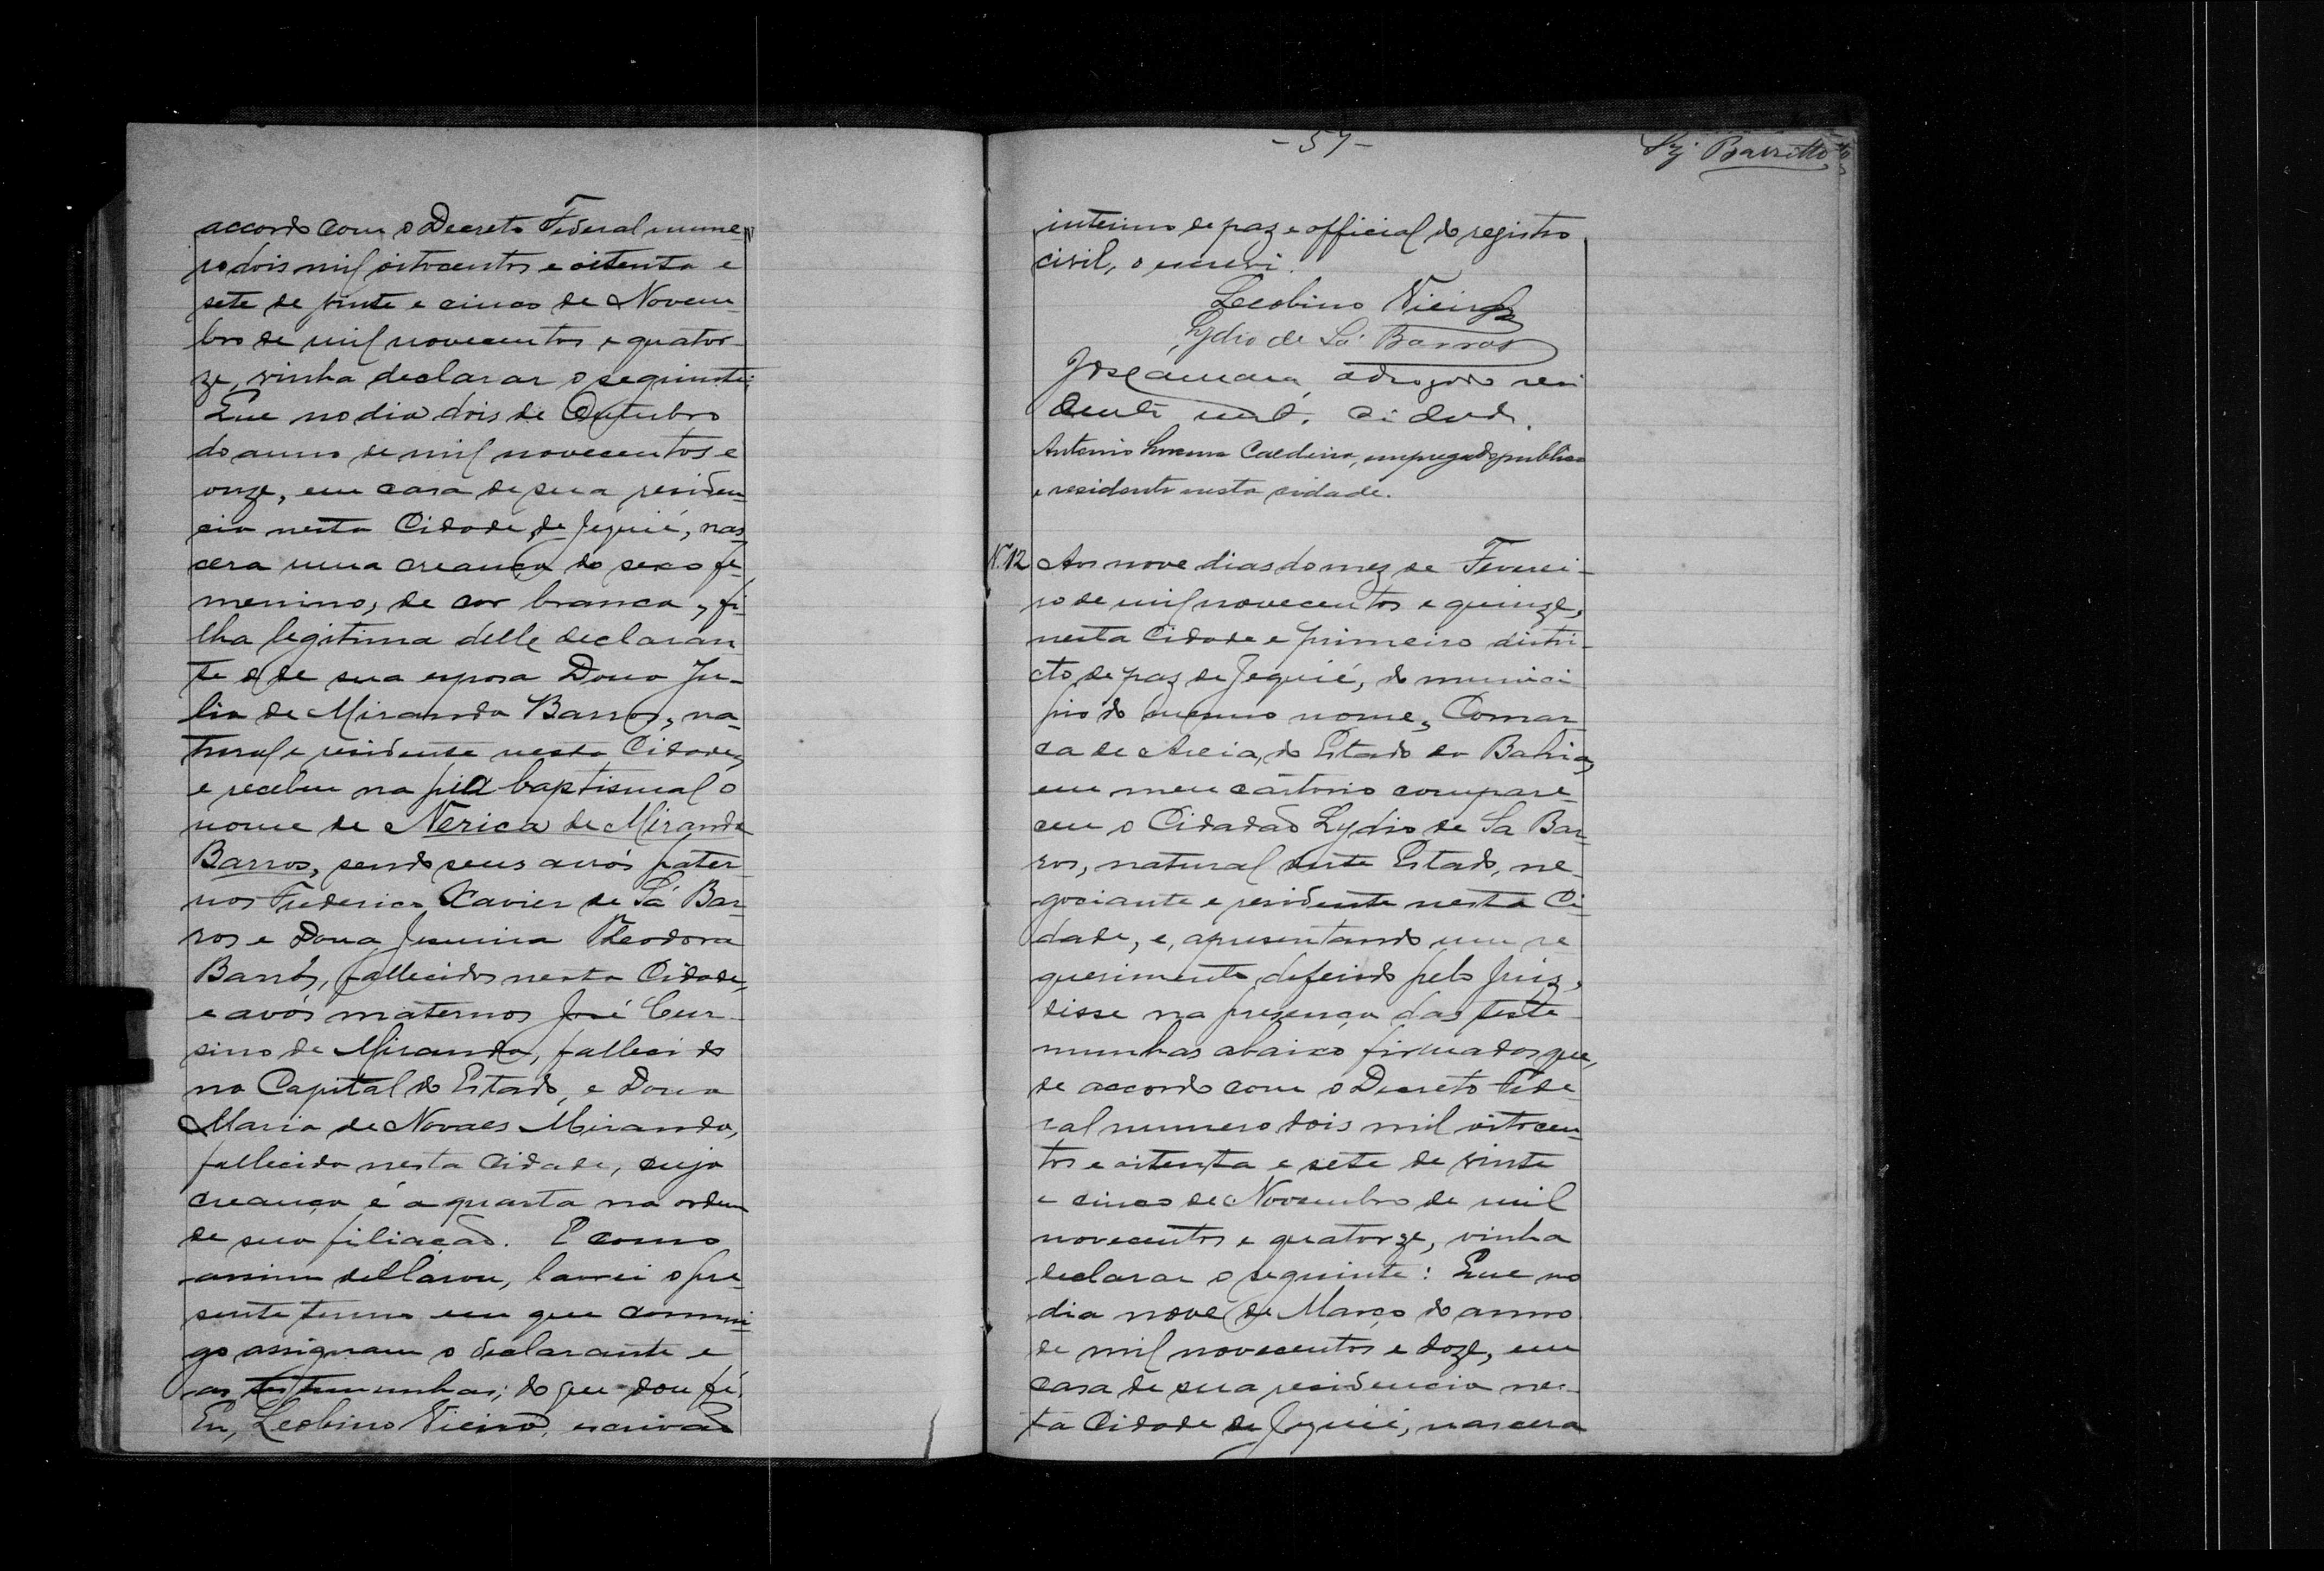 accordo com o Decreto Federal nume-
ro dois mil oitocentos e oitenta e
sete de vinte e cinco de Novem-
bro de mil novecentos e quator-
ze, vinha declarar o seguinte:
Que no dia dois de Outubro
do anno de mil novecentos e
onze, em casa de sua residen-
cia nesta Cidade de Jequié, nas-
cera uma creança do sexo fe-
menino, de cor branca, fi-
lha legitima delle declaran-
te e de sua esposa Dona Ju-
lia de Miranda Barros, na-
tural e residente nesta Cidade,
e recebeu na pia baptismal o
nome de Nerica de Miranda
Barros, sendo seus avós pater-
nos Frederico Xavier de Sá Bar-
ros e Dona Jesuina Theodora
Barros, fallecidos nesta Cidade,
e avós maternos José Cur-
sino de Miranda, fallecido
na Capital do Estado, e Dona
Maria de Novaes Miranda,
fallecida nesta Cidade, cuja
creança é a quarta na ordem
de sua filiação. E como
assim declarou, lavrei o pre-
sente termo em que commi-
go assignam o declarante e
as testemunhas; do que dou fé.
Eu, Leobino Vieira, escrivão
- 57 -
Barretto
interino de paz e official do registro
civil, o escrevi.
Leobino Vieira
Lydio de Sá Barros
advogado resi
dente nest. cidad.
Antonio Caldeira, empregado publico
e residente nesta cidade.
N.12 Aos nove dias do mez de Feverei-
ro de mil novecentos e quinze,
nesta Cidade e primeiro distri-
cto de paz de Jequié, do munici
pio do mesmo nome, Comar
ca de Areia, do Estado da Bahia,
em meu cartorio compare-
ceu o Cidadão Lydio de Sa Bar-
ros, natural deste Estado, ne-
gociante e residente nesta Ci-
dade, e, apresentando um re
querimento deferido pelo Juiz,
disse na presença das teste
munhas abaixo firmadas que,
de accordo com o Decreto Fede
ral numero dois mil oitocen-
tos e oitenta e sete de vinte
e cinco de Novembro de mil
novecentos e quatorze, vinha
declarar o seguinte: Que no
dia nove de Março do anno
de mil novecentos e doze, em
casa de sua residencia nes-
ta Cidade de Jequié, nascera